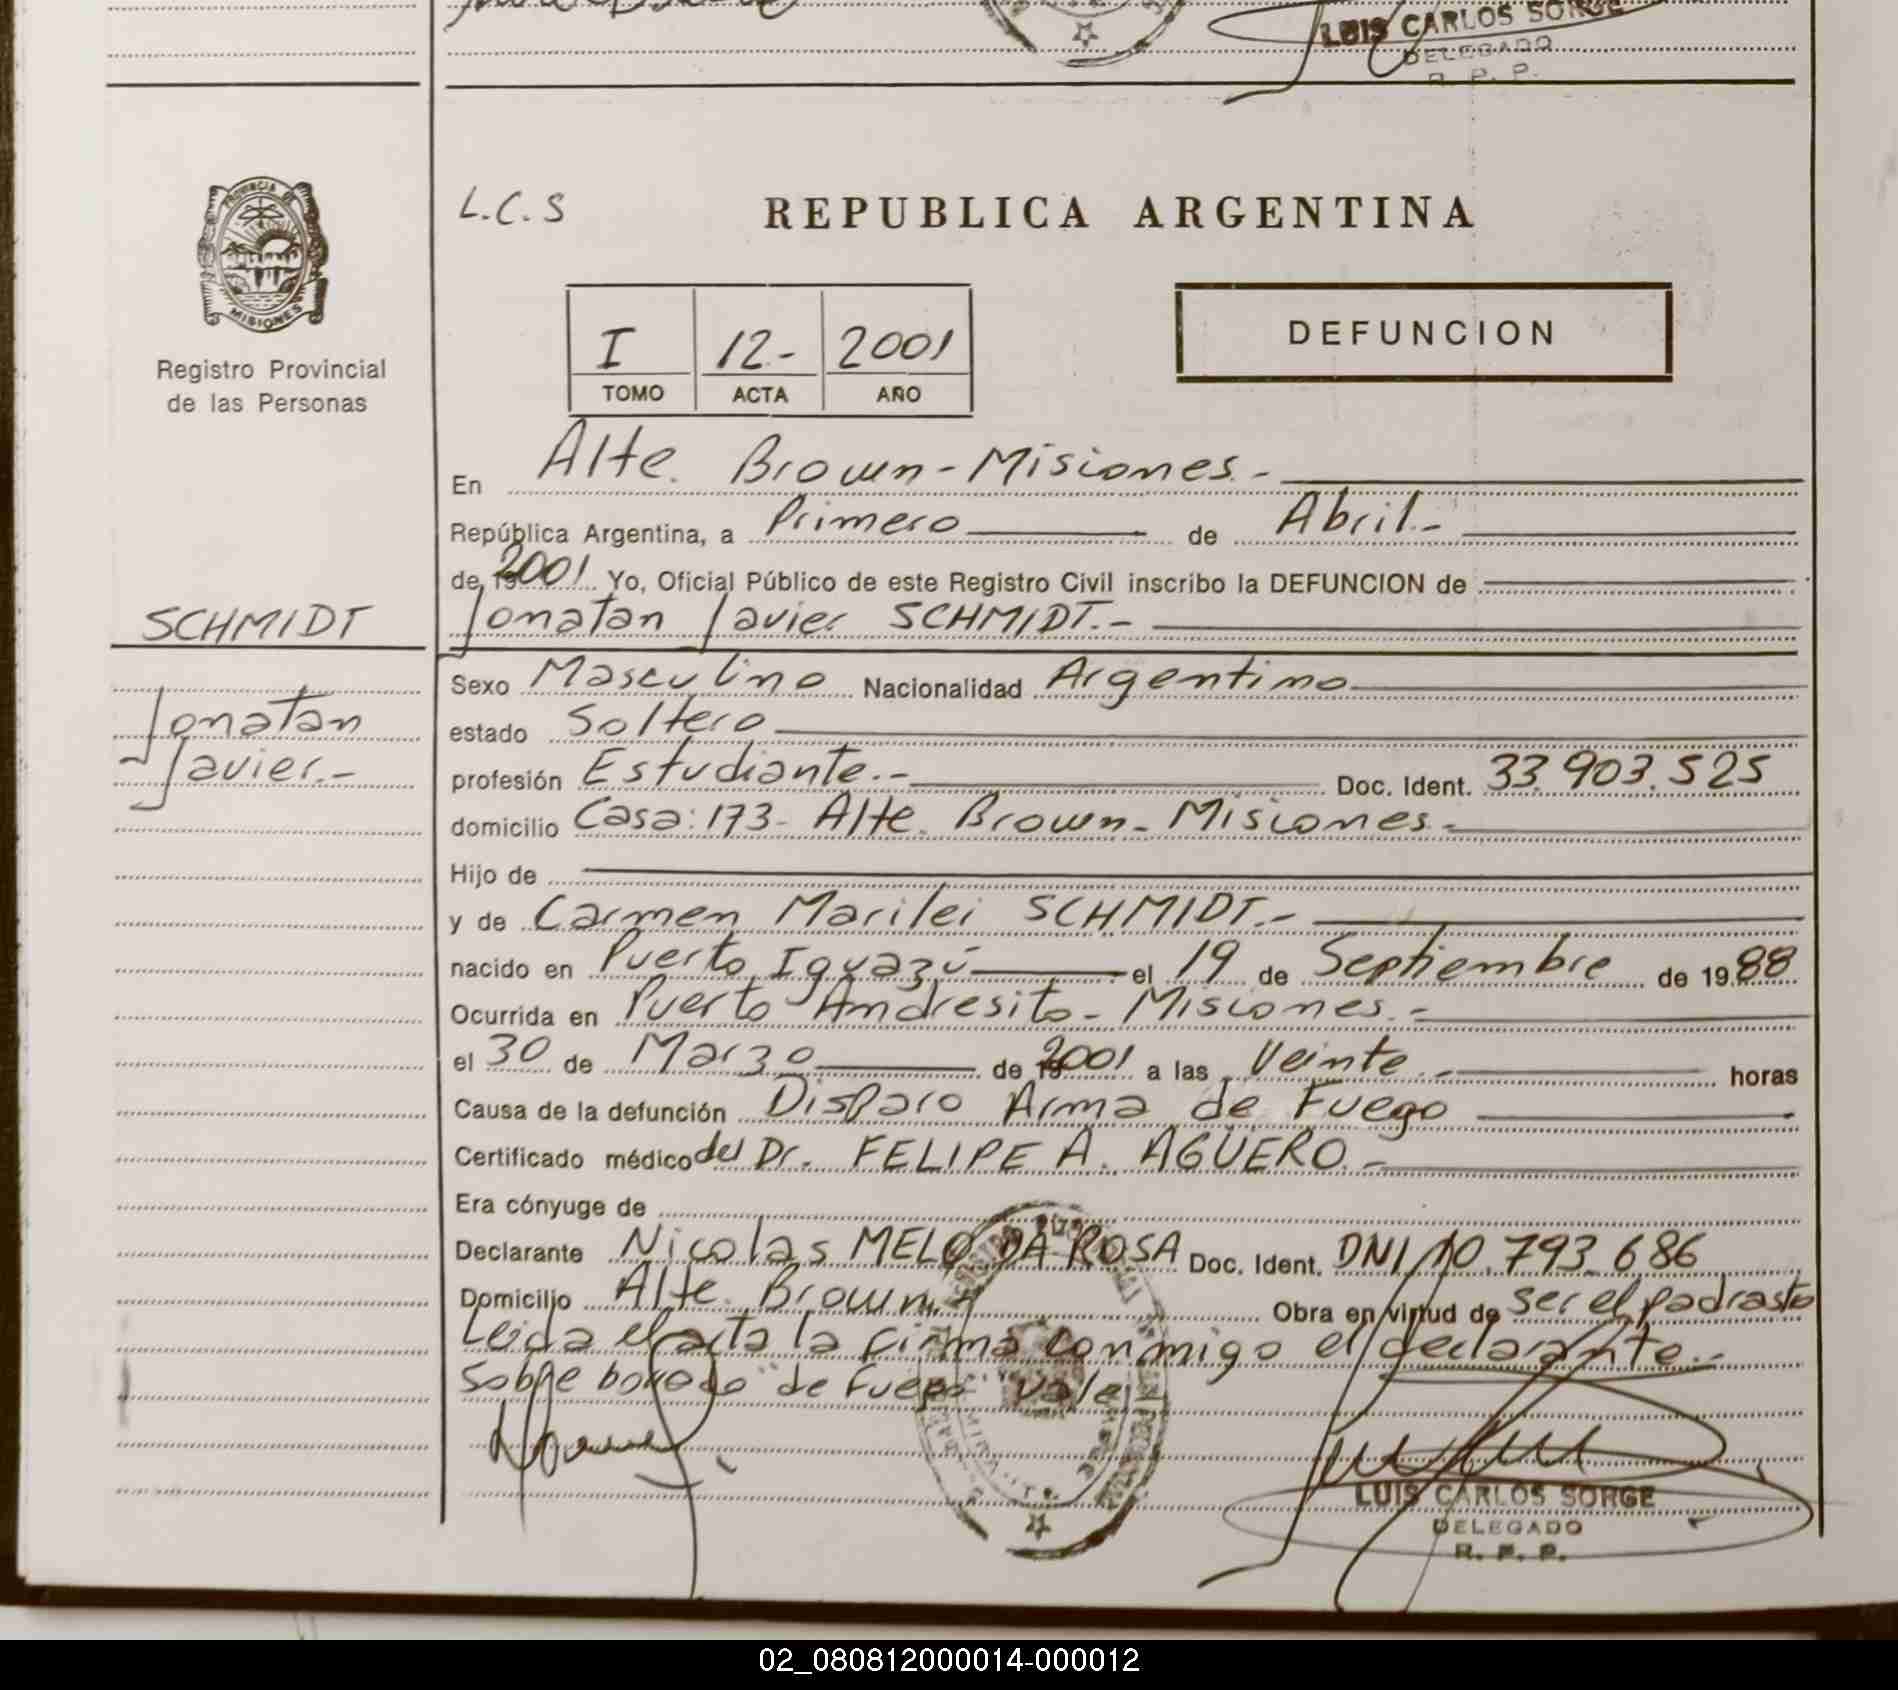 LUIS CARLOS SORGE
DELEGADO
R. P. P.
PROVINCIA DE
MISIONES
Registro Provincial
de las Personas
L.C.S
REPUBLICA ARGENTINA
I 12- 2001
TOMO ACTA AÑO
DEFUNCION
En Alte. Brown - Misiones.-
República Argentina, a Primero de Abril.-
de 2001 Yo, Oficial Público de este Registro Civil inscribo la DEFUNCION de
SCHMIDT
Jonatan Javier SCHMIDT.-
Jonatan
Javier.-
Sexo Masculino Nacionalidad Argentino
estado Soltero
profesión Estudiante.- Doc. Ident. 33.903.525
domicilio Casa: 173- Alte. Brown- Misiones.-
Hijo de
y de Carmen Marilei SCHMIDT.-
nacido en Puerto Iguazú el 19 de Septiembre de 1988
Ocurrida en Puerto Andresito - Misiones.-
el 30 de Marzo de 2001 a las Veinte.- horas
Causa de la defunción Disparo Arma de Fuego
Certificado médico del Dr. FELIPE A. AGÜERO.-
Era cónyuge de
Declarante Nicolas MELO DA ROSA Doc. Ident. DNI 10.793.686
Domicilio Alte. Brown.- Obra en virtud de ser el padrasto
Leida el acta la firma conmigo el declarante.-
Sobre borrado "de Fuego" vale
LUIS CARLOS SORGE
DELEGADO
R. P. P.
02_080812000014-000012